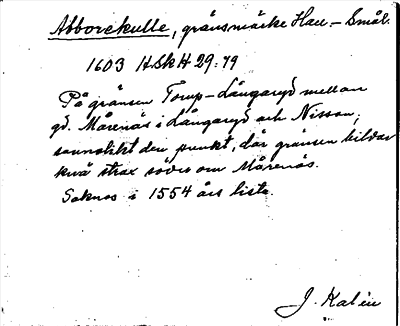 Abborekulle, gränsmärke Hall. – Smål.
1603 HSkH 29:79
På gränsen Torup–Långaryd mellan
gd. Mårenäs i Långaryd och Nissan,
sannolikt den punkt, där gränsen bildar
knä strax söder om Mårenäs.
Saknas i 1554 års lista.
J. Kalén